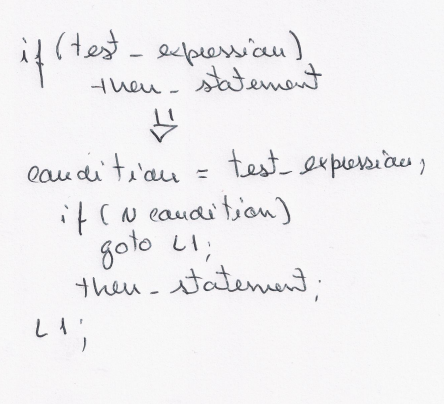 if (test_expression)
then_statement
⇓
condition = test_expression;
if (N condition)
goto L1;
then_statement;
L1;